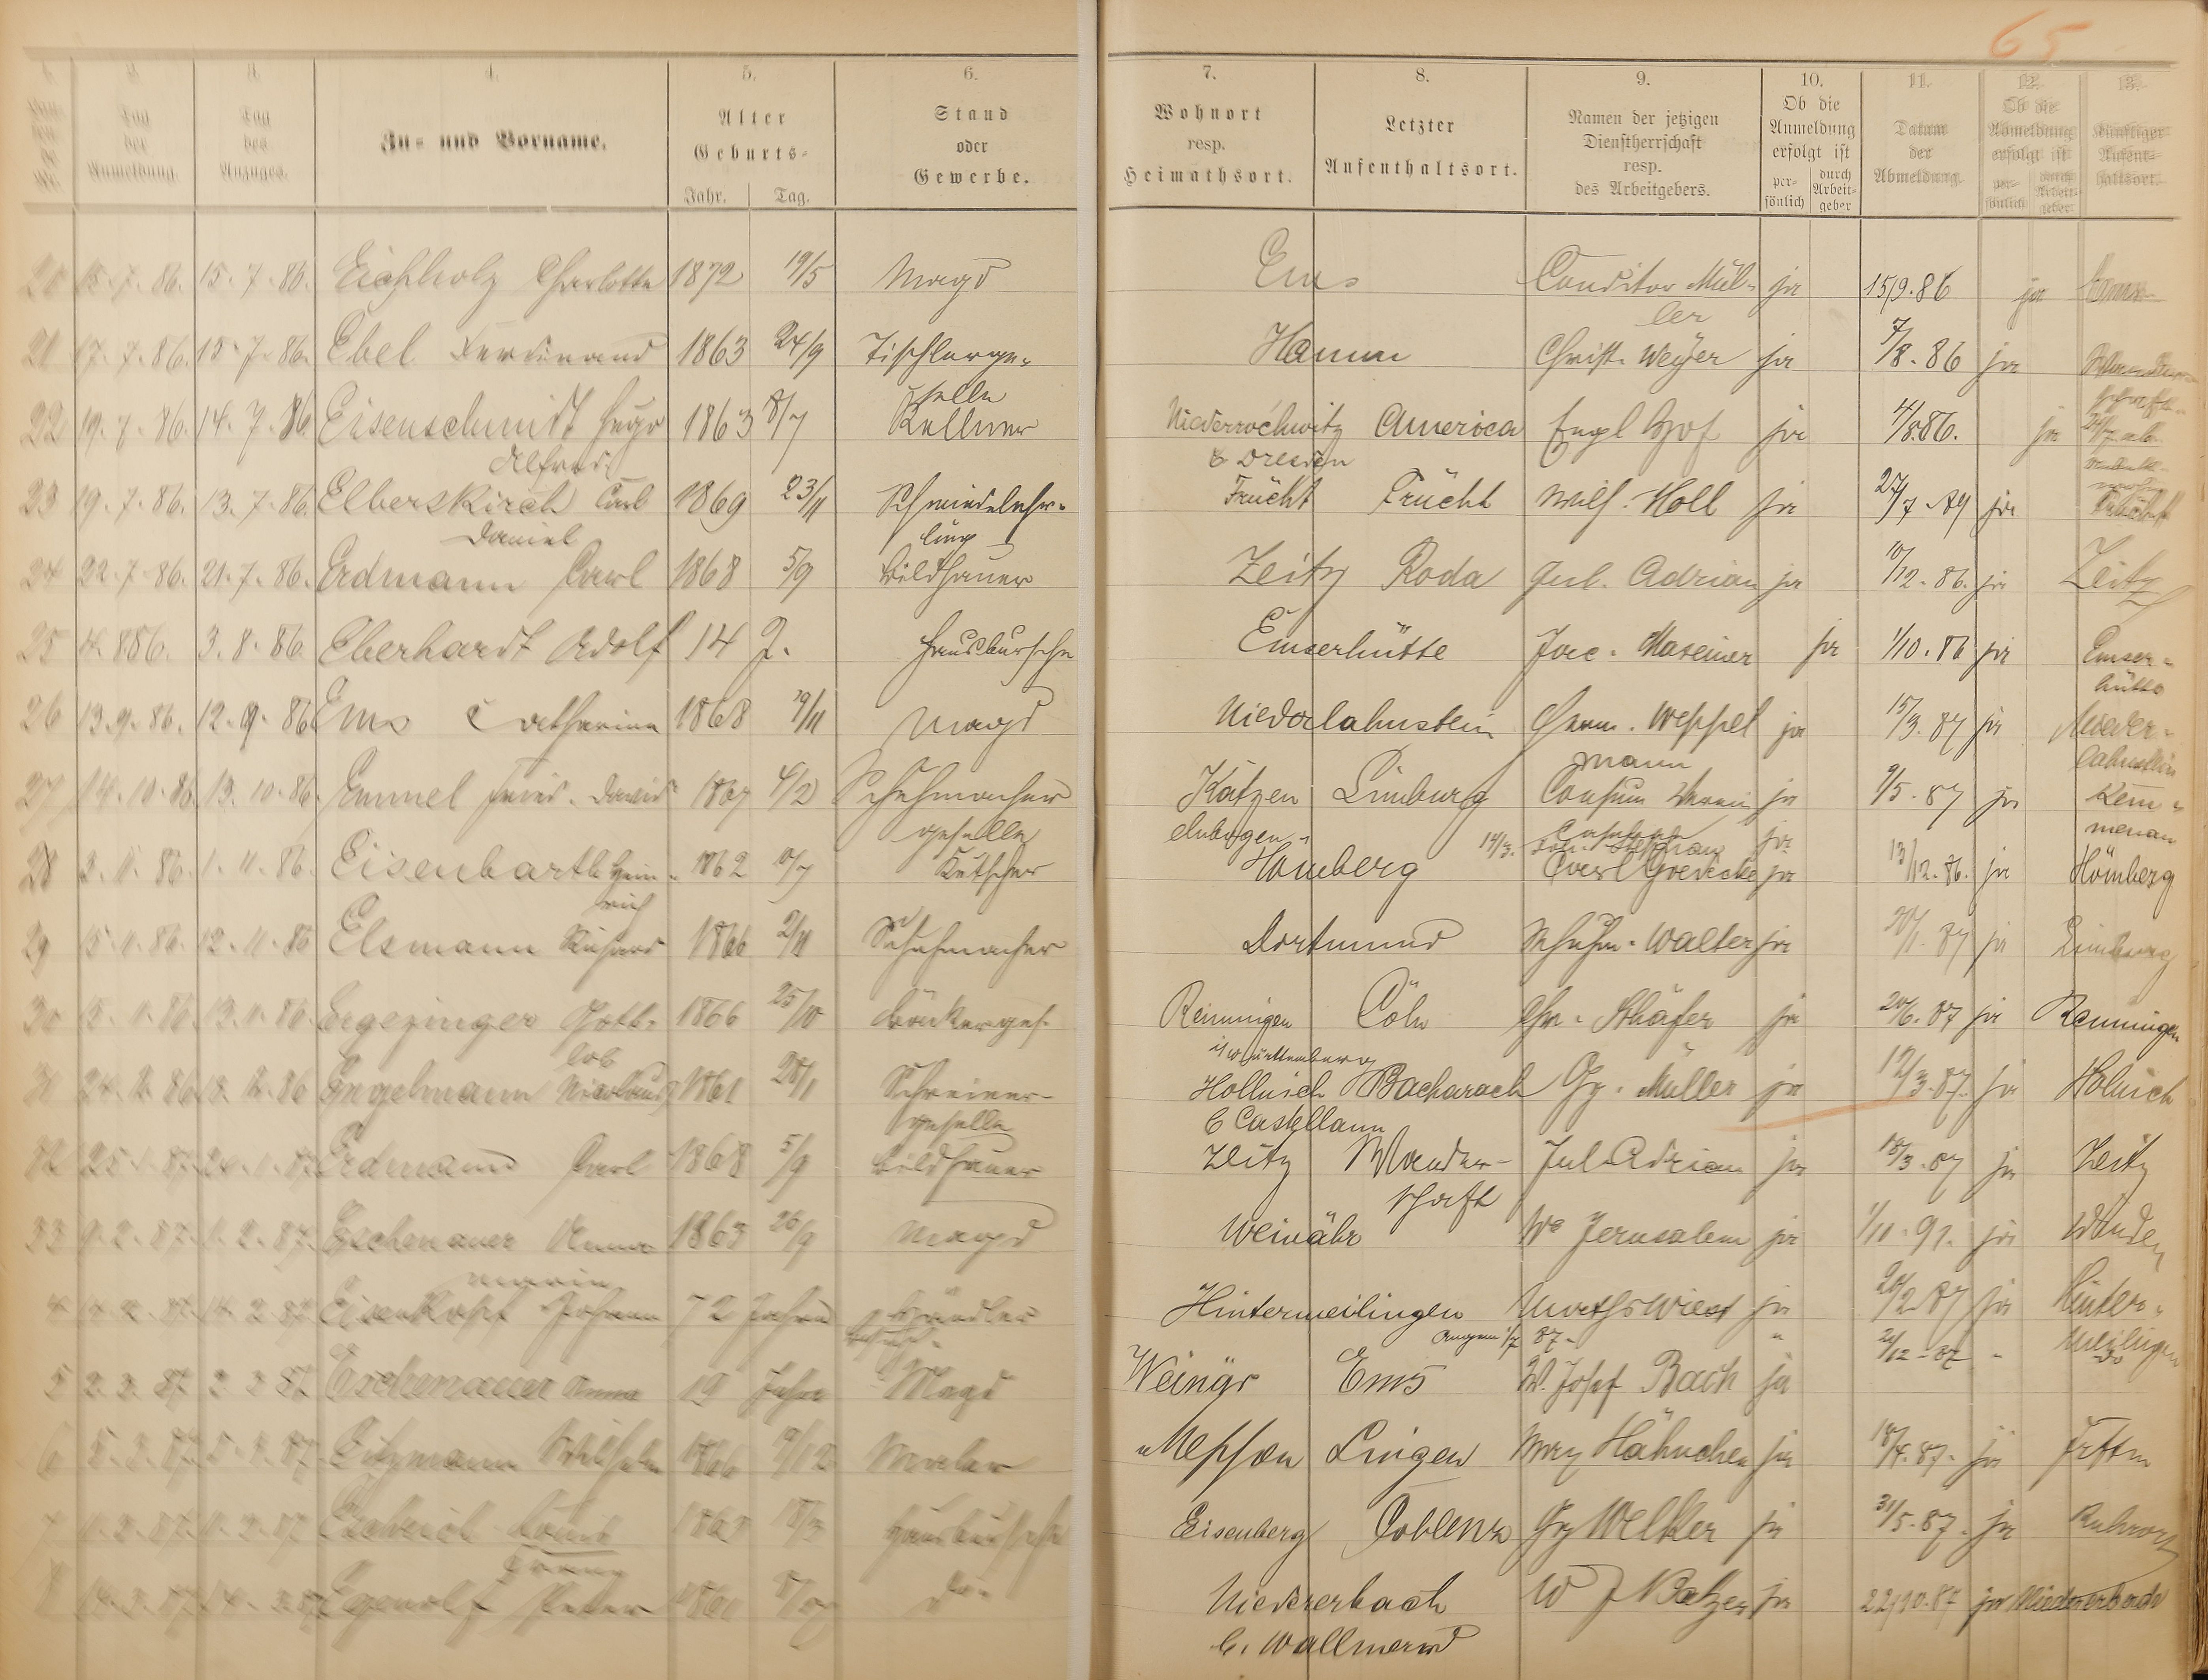 65
1. 2. 3. 4. 5. 6. 7. 8. 9. 10. 11. 12. 13.
Tag der Anmeldung. Tag des Anzuges. Zu- und Vorname. Alter Geburts- Jahr. Tag. Stand oder Gewerbe. Wohnort resp. Heimathsort. Letzter Aufenthaltsort. Namen der jetzigen Dienstherrschaft resp. des Arbeitgebers. Ob die Anmeldung erfolgt ist per- sönlich durch Arbeit- geber Datum der Abmeldung Ob die Abmeldung erfolgt ist per- sönlich durch Arbeit- geber Künftiger Aufent- haltsort.
20 15.7.86. 15.7.86. Eichholz Charlotte 1872 19/5 Magd Ems Conditor Mül- ja 15/9.86 ja
ler
21 17.7.86. 15.7.86. Ebel Ferdinand 1863 24/9 Tischlerge- Hamm Christ. Weyer ja 7/8.86 ja
selle
22 19.7.86. 14.7.86 Eisenschmidt Hugo 1863 8/7 Kellner Niederrochwitz America Engl Hof ja 4/8.86. ja
Alfred b Dresden
23 19.7.86. 13.7.86. Elberskirch Carl 1869 23/11 Schmiedelehr- Frücht Frücht Wilh. Holl ja 27/7.89 ja
Daniel ling
24 22.7.86. 21.7.86. Erdmann Carl 1868 5/9 Bildhauer Zeitz Roda Jul. Adrian ja 10/12.86. ja Zeitz
25 4.8.86. 3.8.86. Eberhardt Adolf 14 J. Hausbursche Emserhütte Jac. Maxeiner ja 1/10.86 ja Emser-
hütte
26 13.9.86. 12.9.86 Ems Catharina 1868 19/11 Magd Niederlahnstein Herm. Weppel ja 15/3.87 ja Nieder-
mann lahnstein
27 14.10.86 13.10.86. Emmel Fried. David 1867 4/2 Schuhmacher Katzen Limburg Consum Verein ja 9/5.87 ja Kem-
geselle elnbogen 14/3. ja menau
28 3.11.86. 1.11.86. Eisenbarth Hein- 1862 10/7 Kutscher Homberg Carl Goedecke ja 13/12.86. ja Hömberg
rich
29 15.11.86. 12.11.86 Elsmann Richard 1866 2/11 Schuhmacher Dortmund Schuhm. Walter ja 20/1.87 ja Limburg
30 15.11.86. 13.11.86. Ergezinger Gott- 1866 25/10 Bäckerges. Renningen Cöln Chr. Schäfer ja 20/6.87 ja Renningen
lob i/Württemberg
31 24.12.86 Engelmann Nicolaus 1861 28/1 Schreiner- Hollnich Bacharach Gg. Müller ja 12/3.87. ja Holnich
geselle b Castellaun
32 25.1.87. 24.1.87. Erdmann Carl 1868 5/9 Bildhauer Zeitz Wander- Jul. Adrian ja 18/3.87 ja Zeitz
schaft
33 9.2.87. 1.2.87. Eschenauer Anna 1863 26/9 Magd Weinähr Wo Jerusalem ja 1/11.91. ja
Maria
4 14.2.87. 14.2.87 Eisenkopf Johann 72 Jahre Händler Hintermeilingen Wiest ja 20/2 87 ja Hinter-
87. 21/12-87 meilingen
5 2.3.87. 2.3.87 Eschenauer Anna 19 Jahre Magd Weinär Ems W. Josef Bach ja
6 5.3.87. 5.3.87. Eitzmann Wilhelm 1866 9/12 Maler Meppen Lingen Hähnchen ja 18/4.87. ja
7 11.3.87. 11.3.87 Louis 1862 18/3 Hausbursche Eisenberg Coblenz Gg Welker ja 31/5.87. ja Ruhrort
Franz
8 14.3.87 14.3.87 Egenolf Peter do. Niedererbach W J Balzer ja 22/10.87 ja Niedererbach
b. Wallmerod